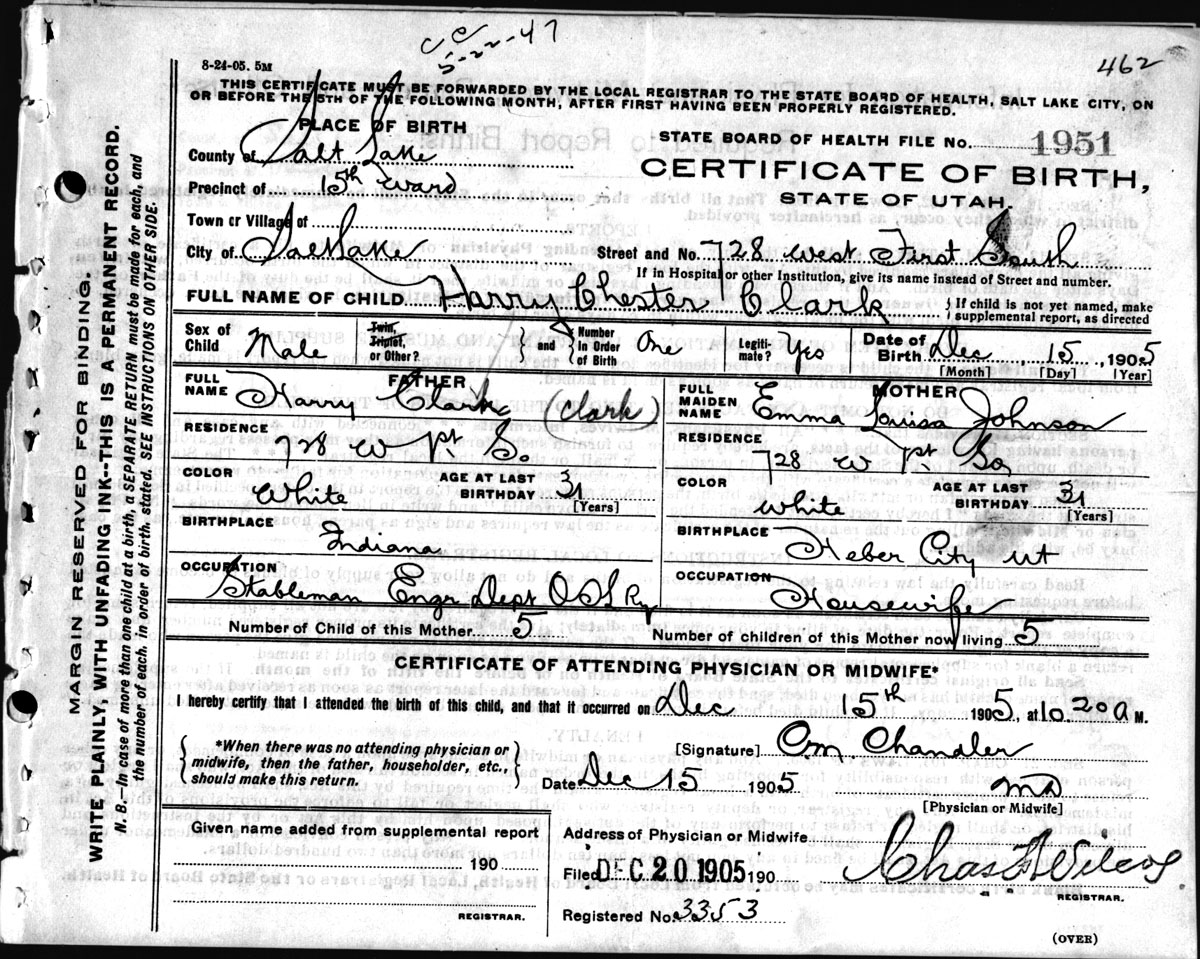 ce
5-22-47
462
8-24-05. 5M
THIS CERTIFICATE MUST BE FORWARDED BY THE LOCAL REGISTRAR TO THE STATE BOARD OF HEALTH, SALT LAKE CITY, ON
OR BEFORE THE 5TH OF THE FOLLOWING MONTH, AFTER FIRST HAVING BEEN PROPERLY REGISTERED.
PLACE OF BIRTH
STATE BOARD OF HEALTH FILE No. 1951
County of Salt Lake
CERTIFICATE OF BIRTH,
Precinct of 15th Ward
STATE OF UTAH.
Town or Village of
City of Salt Lake Street and No. 728 West First South
If in Hospital or other Institution, give its name instead of Street and number.
FULL NAME OF CHILD Harry Chester Clark { If child is not yet named, make supplemental report, as directed
Sex of Child Male Twin, Triplet, or Other? } and { Number in Order of Birth One Legitimate? Yes Date of Birth Dec 15, 1905
[Month] [Day] [Year]
FATHER
FULL NAME Harry Clark (Clark)
MOTHER
FULL MAIDEN NAME Emma Louisa Johnson
RESIDENCE 728 W 1st So.
RESIDENCE 728 W 1st So
COLOR White AGE AT LAST BIRTHDAY 31 [Years]
COLOR White AGE AT LAST BIRTHDAY 31 [Years]
BIRTHPLACE Indiana
BIRTHPLACE Heber City Ut
OCCUPATION Stableman Engr Dept O S L Ry
OCCUPATION Housewife
Number of Child of this Mother 5 Number of children of this Mother now living 5
CERTIFICATE OF ATTENDING PHYSICIAN OR MIDWIFE*
I hereby certify that I attended the birth of this child, and that it occurred on Dec 15th 1905, at 10.20 a M.
{ *When there was no attending physician or midwife, then the father, householder, etc., should make this return. }
[Signature] Om Chandler
Date Dec 15 1905 MD
[Physician or Midwife]
Given name added from supplemental report
190
REGISTRAR.
Address of Physician or Midwife
Filed DEC 20 1905 190 Chas
REGISTRAR.
Registered No. 3353
(OVER)
MARGIN RESERVED FOR BINDING.
WRITE PLAINLY, WITH UNFADING INK--THIS IS A PERMANENT RECORD.
N. B.—In case of more than one child at a birth, a SEPARATE RETURN must be made for each, and
the number of each, in order of birth, stated. SEE INSTRUCTIONS ON OTHER SIDE.